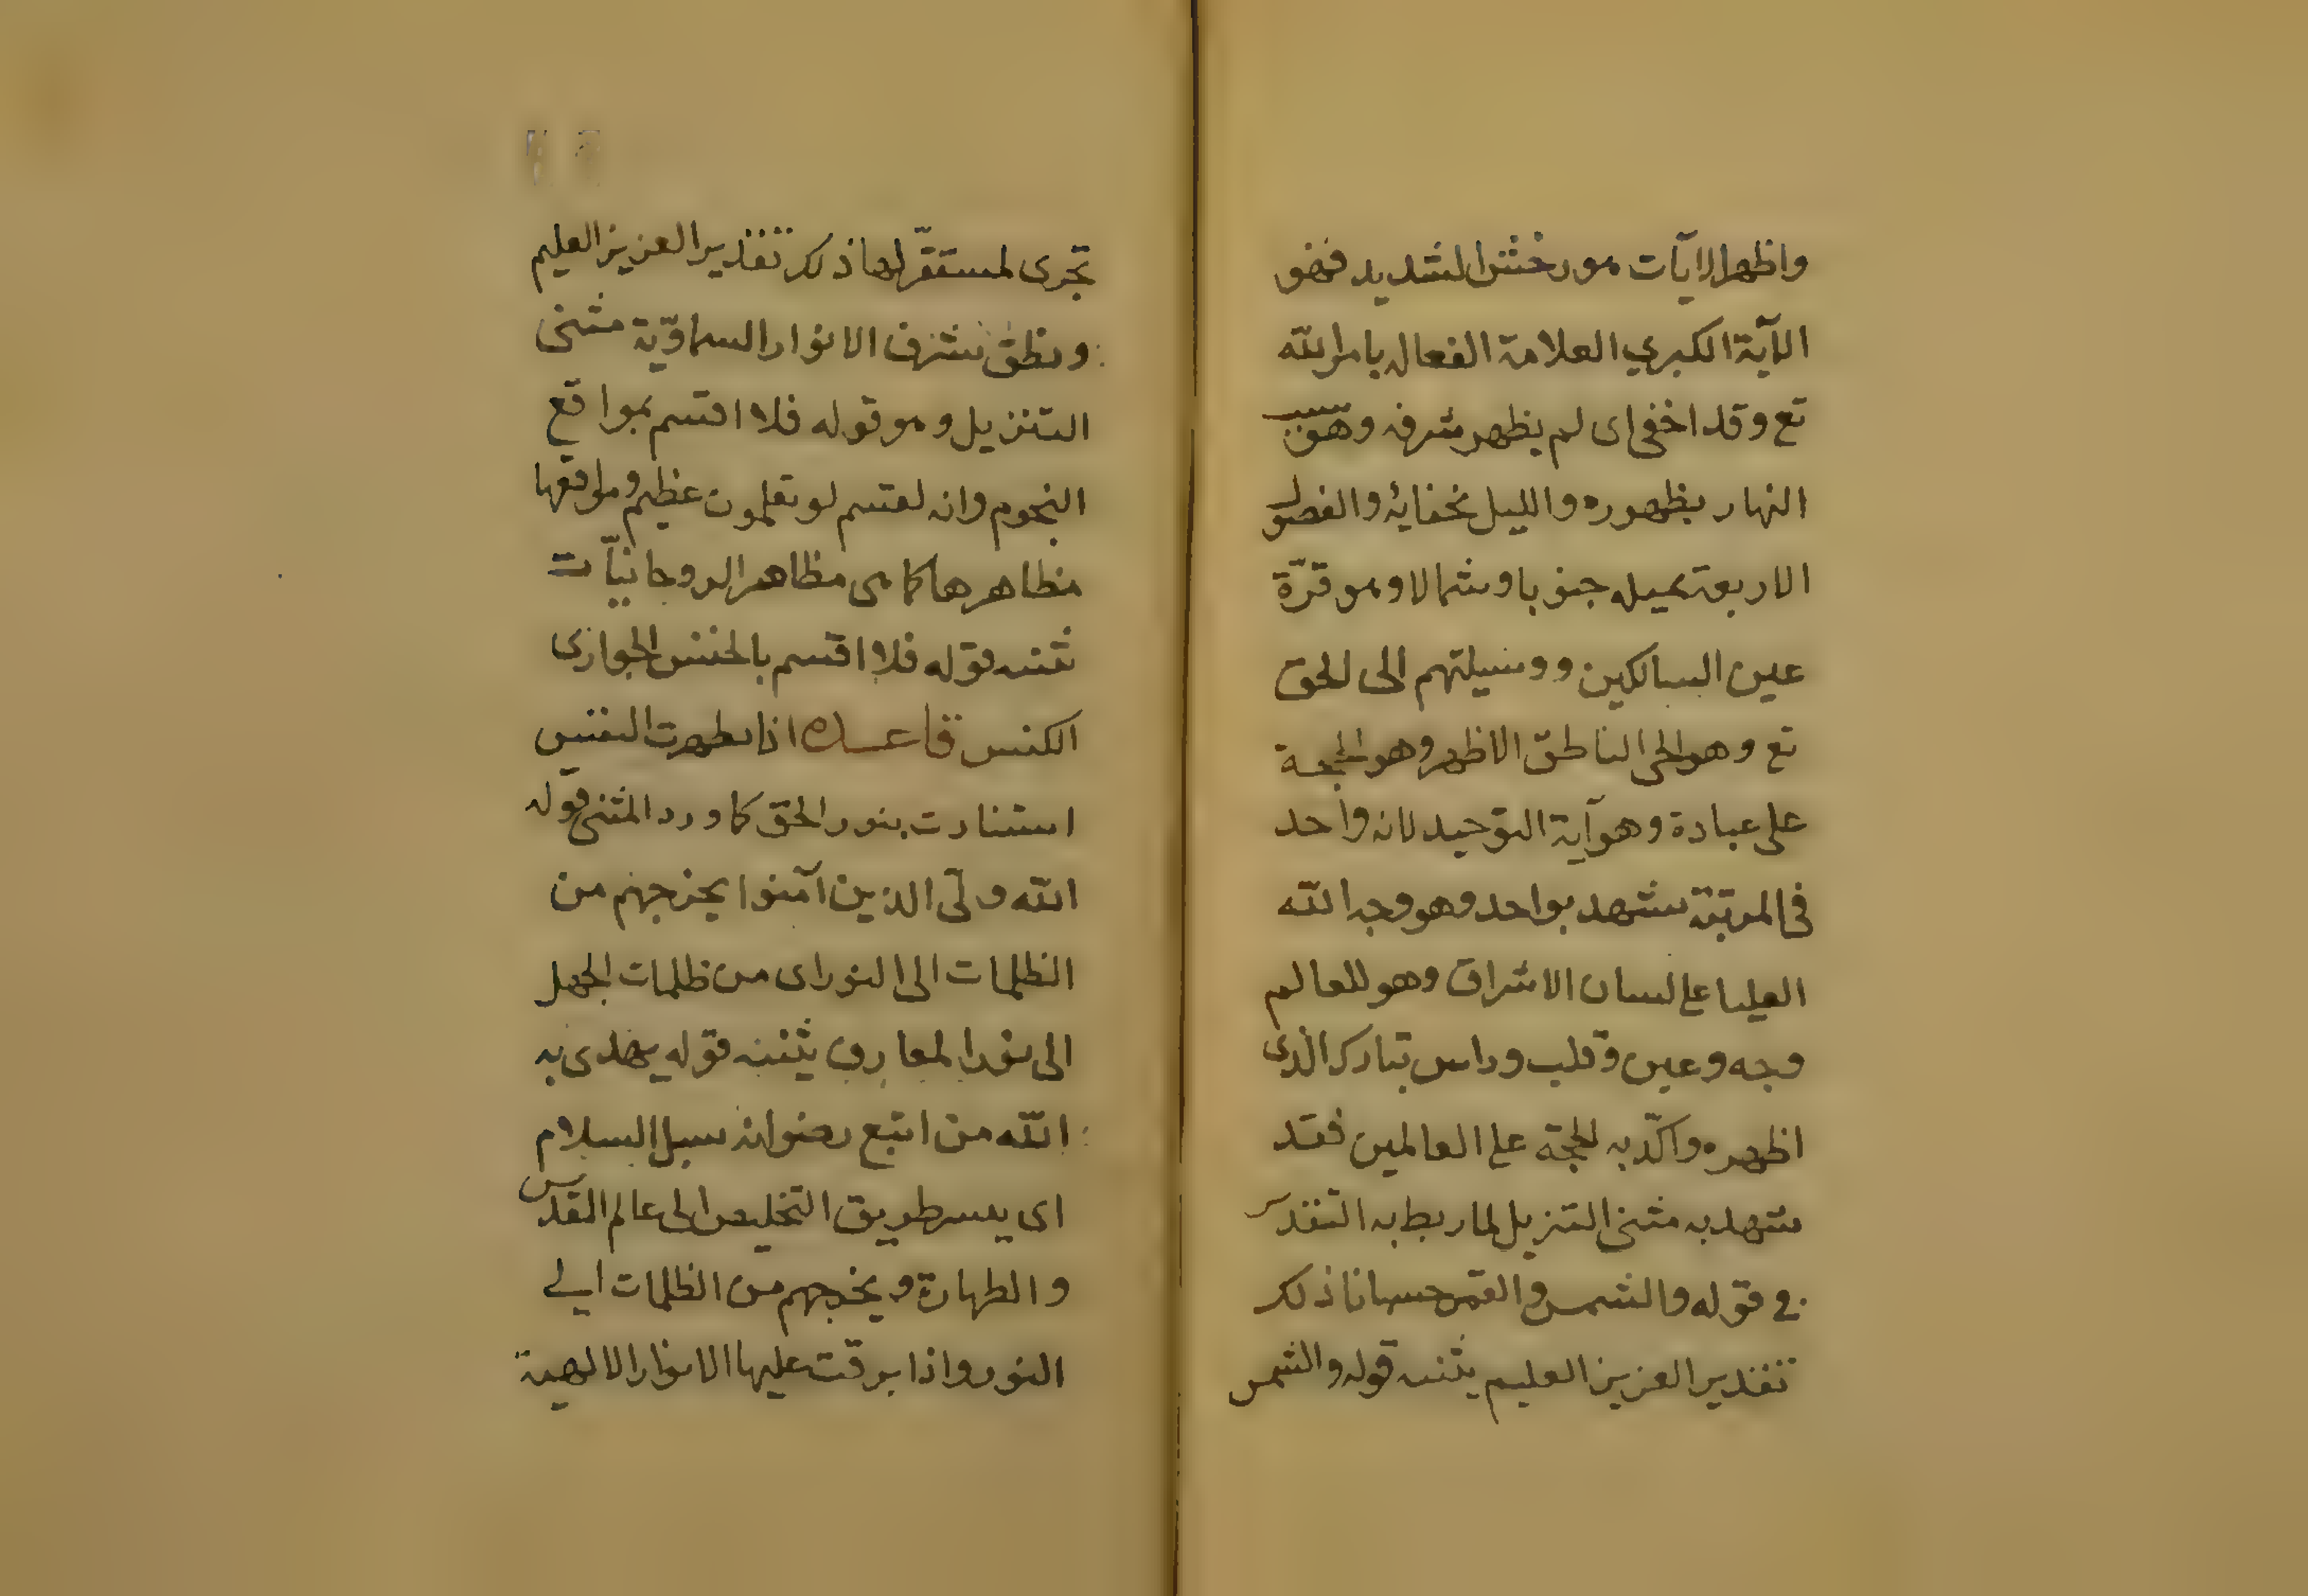 واظهر الايات هورخش الشديد فهو
الآية الكبري العلامة الفعال بامر الله
تع وقد اخفى اى لم يظهر شرفه وهو سبب
النهار بظهوره والليل بخفايه والفصول
الاربعة بميله جنوبا وشمالا وهو قرّة
عين السالكين ووسيلتهم الى الحق
تع وهو الحى الناطق الاظهر وهو الحجة
على عبادة وهو آية التوحيد لانه واحد
فى المرتبة يشهد بواحد وهو وجه الله
العليا على لسان الاشراق وهو للعالم
وجه وعين وقلب وراس تبارك الذى
اظهره واكّد به الحجة على العالمين فقد
شهد به مثنى التنزيل لما ربط به التقدير
فى قوله والشمس والقمر حسبانا ذلك
تقدير العزيز العليم يثنيه قوله والشمس
تجرى لمستقرّ لها ذلك تقدير العزيز العليم
ونطق بشرف الانوار السماويّة مثنى
التنزيل وهو قوله فلا اقسم بمواقع
النجوم وانه لقسم لو تعلمون عظيم ومواقعها
مظاهرها كما هى مظاهر الروحانيّات
ثنيه قوله فلا اقسم بالخنس الجوارى
الكنس قاعده اذا طهرت النفس
استنارت بنور الحق كما ورد المثنى قوله
الله ولىّ الذين آمنوا يخرجهم من
الظلمات الى النور اى من ظلمات الجهل
الى نور المعارف يثنيه قوله يهدى به
الله من اتبع رضوانه سبل السلام
اى ييسر طريق التخليص الى عالم القدس
والطهارة ويخرجهم من الظلمات الي
النور واذا برقت عليها الانوار الالهية